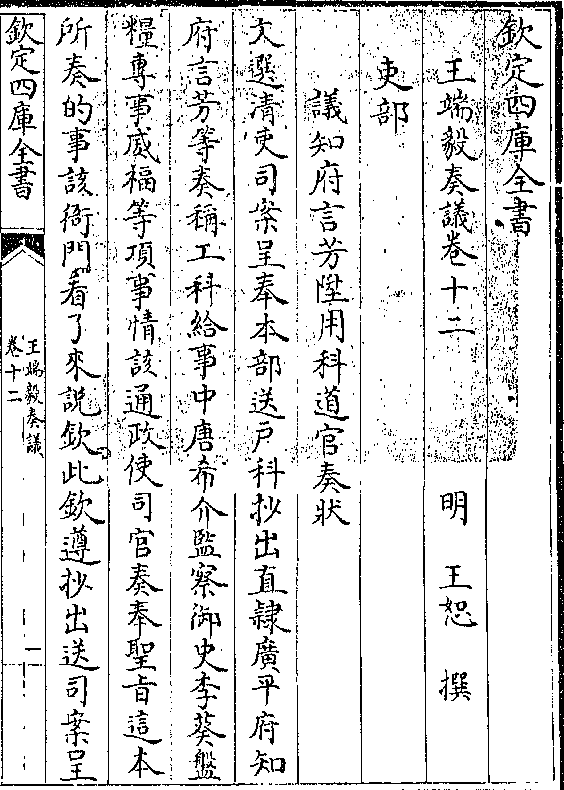 欽定四庫全書
王端毅奏議卷十二 明 王恕 撰
吏部
議知府言芳陞用科道官奏狀
文選清吏司案呈奉本部送戶科抄出直隸廣平府知
府言芳等奏稱工科給事中唐希介監察御史李葵盤
糧專事威福等項事情該通政使司官奏奉聖旨這本
所奏的事該衙門看了來說欽此欽遵抄出送司案呈
欽定四庫全書
王端毅奏議
卷十二
一